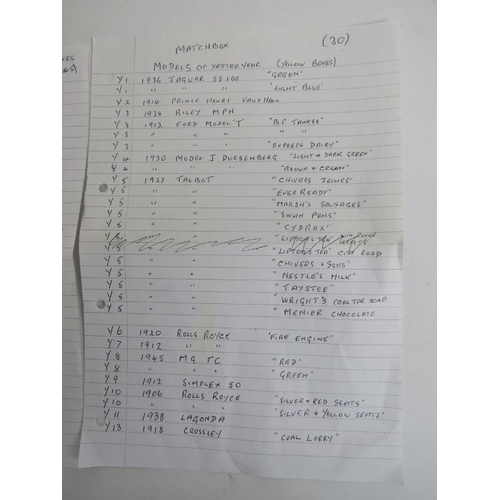 (30)
MATCHBOX
MODELS OF YESTERYEAR (YELLOW BOXES)
Y1 1936 JAGUAR SS100 "GREEN"
Y1 " " " "LIGHT BLUE"
Y2 1914 PRINCE HENRY VAUXHALL
Y3 1934 RILEY MPH
Y3 1912 FORD MODEL 'T' "B.P. TANKER"
Y3 " " " "
Y3 " " "EXPRESS DAIRY"
Y4 1930 MODEL J DUESENBERG "LIGHT & DARK GREEN"
Y4 " " " "BROWN & CREAM"
Y5 1927 TALBOT "CHIVERS JELLIES"
Y5 " " "EVER READY"
Y5 " " "MARSH'S SAUSAGES"
Y5 " " "SWAN PENS"
Y5 " " "CYDRAX"
Y5 "LIPTONS TEA"
"LIPTONS TEA" CITY ROAD
Y5 " " "CHIVERS & SONS"
Y5 " " "NESTLE'S MILK"
Y5 " " "TAYSTEE"
Y5 " " "WRIGHT'S COAL TAR SOAP
Y5 " " "MENIER CHOCOLATE
Y6 1920 ROLLS ROYCE "FIRE ENGINE"
Y7 1912 " "
Y8 1945 MG TC "RED"
Y8 " " " "GREEN"
Y9 1912 SIMPLEX 50
Y10 1906 ROLLS ROYCE "SILVER & RED SEATS"
Y10 " " " "SILVER & YELLOW SEATS"
Y11 1938 LAGONDA
Y13 1918 CROSSLEY "COAL LORRY"